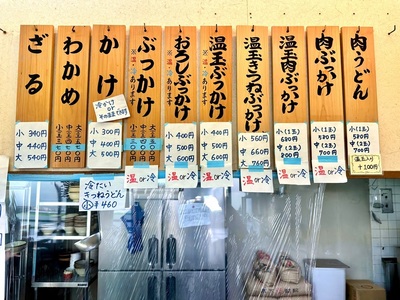 ざる
小 340円
中 440円
大 540円
わかめ
かけ
冷かけ
or
小 300円
中 400円
大 500円
ぶっかけ
※温・冷あります
おろしぶっかけ
※温・冷あります
小 400円
中 500円
大 600円
温or冷
温玉ぶっかけ
※温・冷あります
小 400円
中 500円
大 600円
温or冷
温玉きつねぶっかけ
小 560円
中 660円
大 760円
温or冷
温玉肉ぶっかけ
小(1玉)
680円
中(2玉)
800円
温or冷
肉ぶっかけ
小(1玉)
580円
中(2玉)
700円
温or冷
肉うどん
小(1玉)
580円
中(2玉)
700円
温玉入り
+100円
冷たい
きつねうどん
小¥460